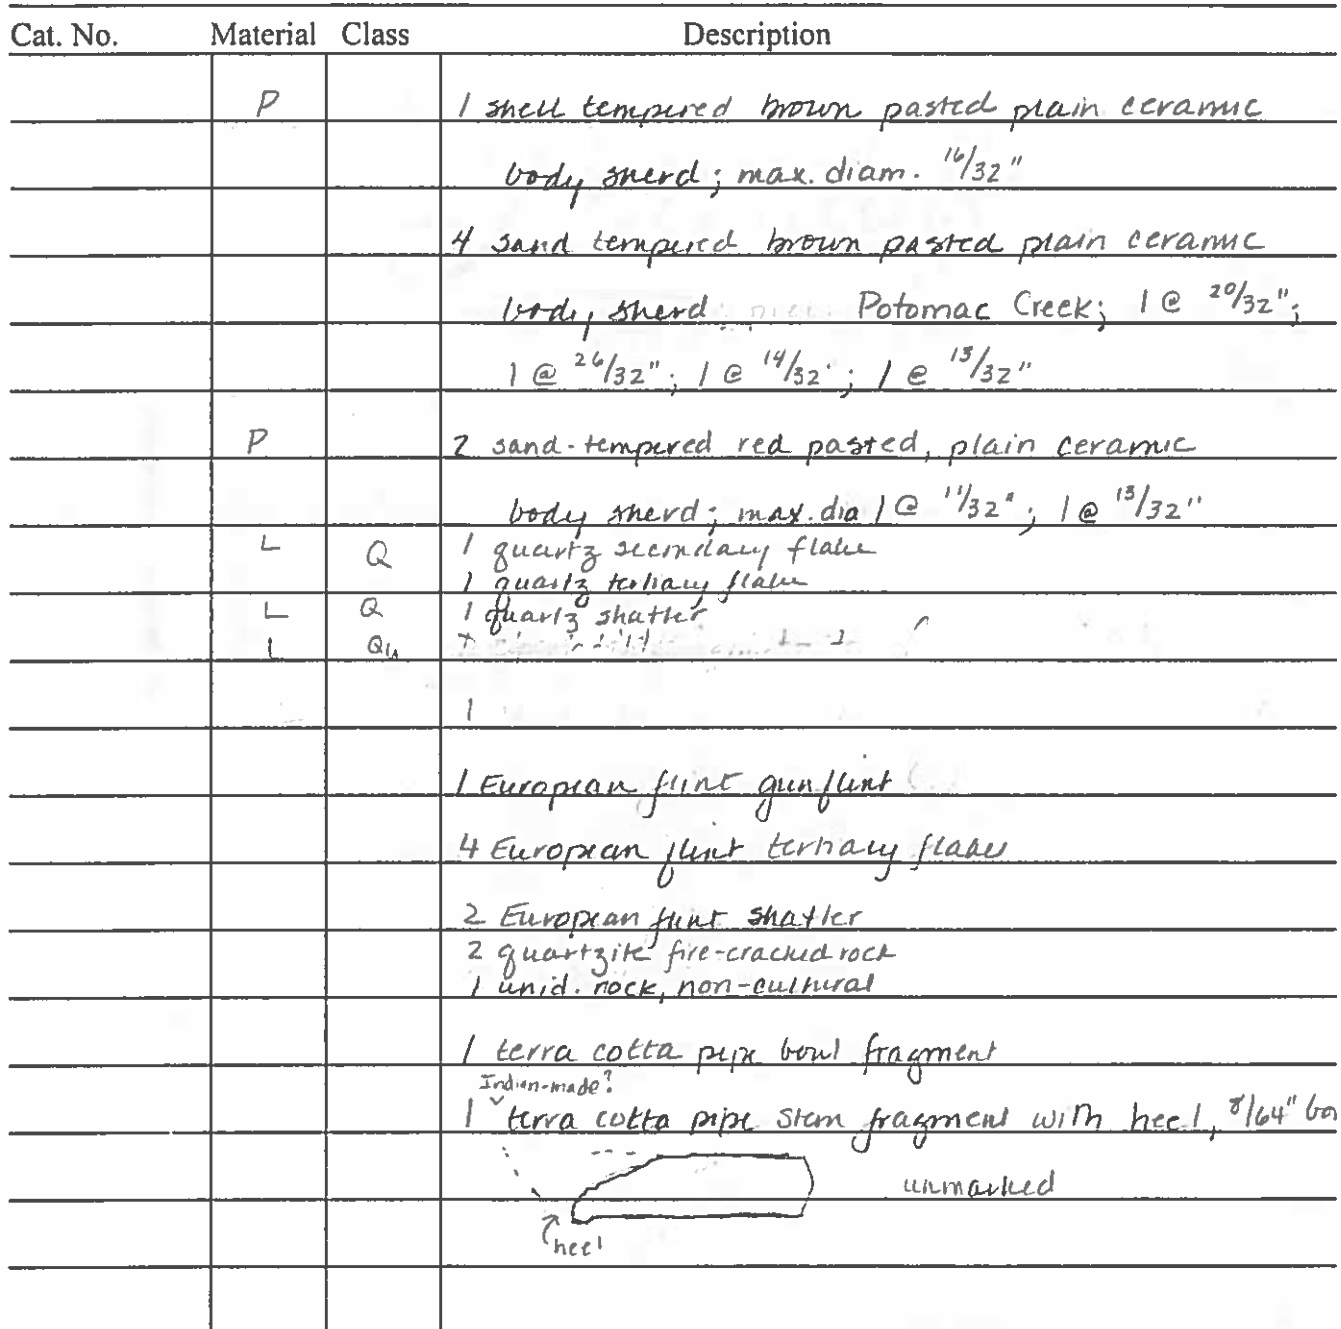 Cat. No. Material Class Description
P 1 shell tempered brown pasted plain ceramic
body sherd; max. diam. 16/32"
4 sand tempered brown pasted plain ceramic
body sherd Potomac Creek; 1 @ 20/32";
1 @ 26/32"; 1 @ 14/32"; 1 @ 13/32"
P 2 sand-tempered red pasted, plain ceramic
body sherd; max. dia 1 @ 11/32"; 1 @ 13/32"
L Q 1 quartz secondary flake
1 quartz tertiary flake
L Q 1 quartz shatter
L
1
1 European flint gunflint
4 European flint tertiary flakes
2 European flint shatter
2 quartzite fire-cracked rock
1 unid. rock, non-cultural
1 terra cotta pipe bowl fragment
Indian-made?
1 terra cotta pipe stem fragment with heel, 8/64"
unmarked
heel